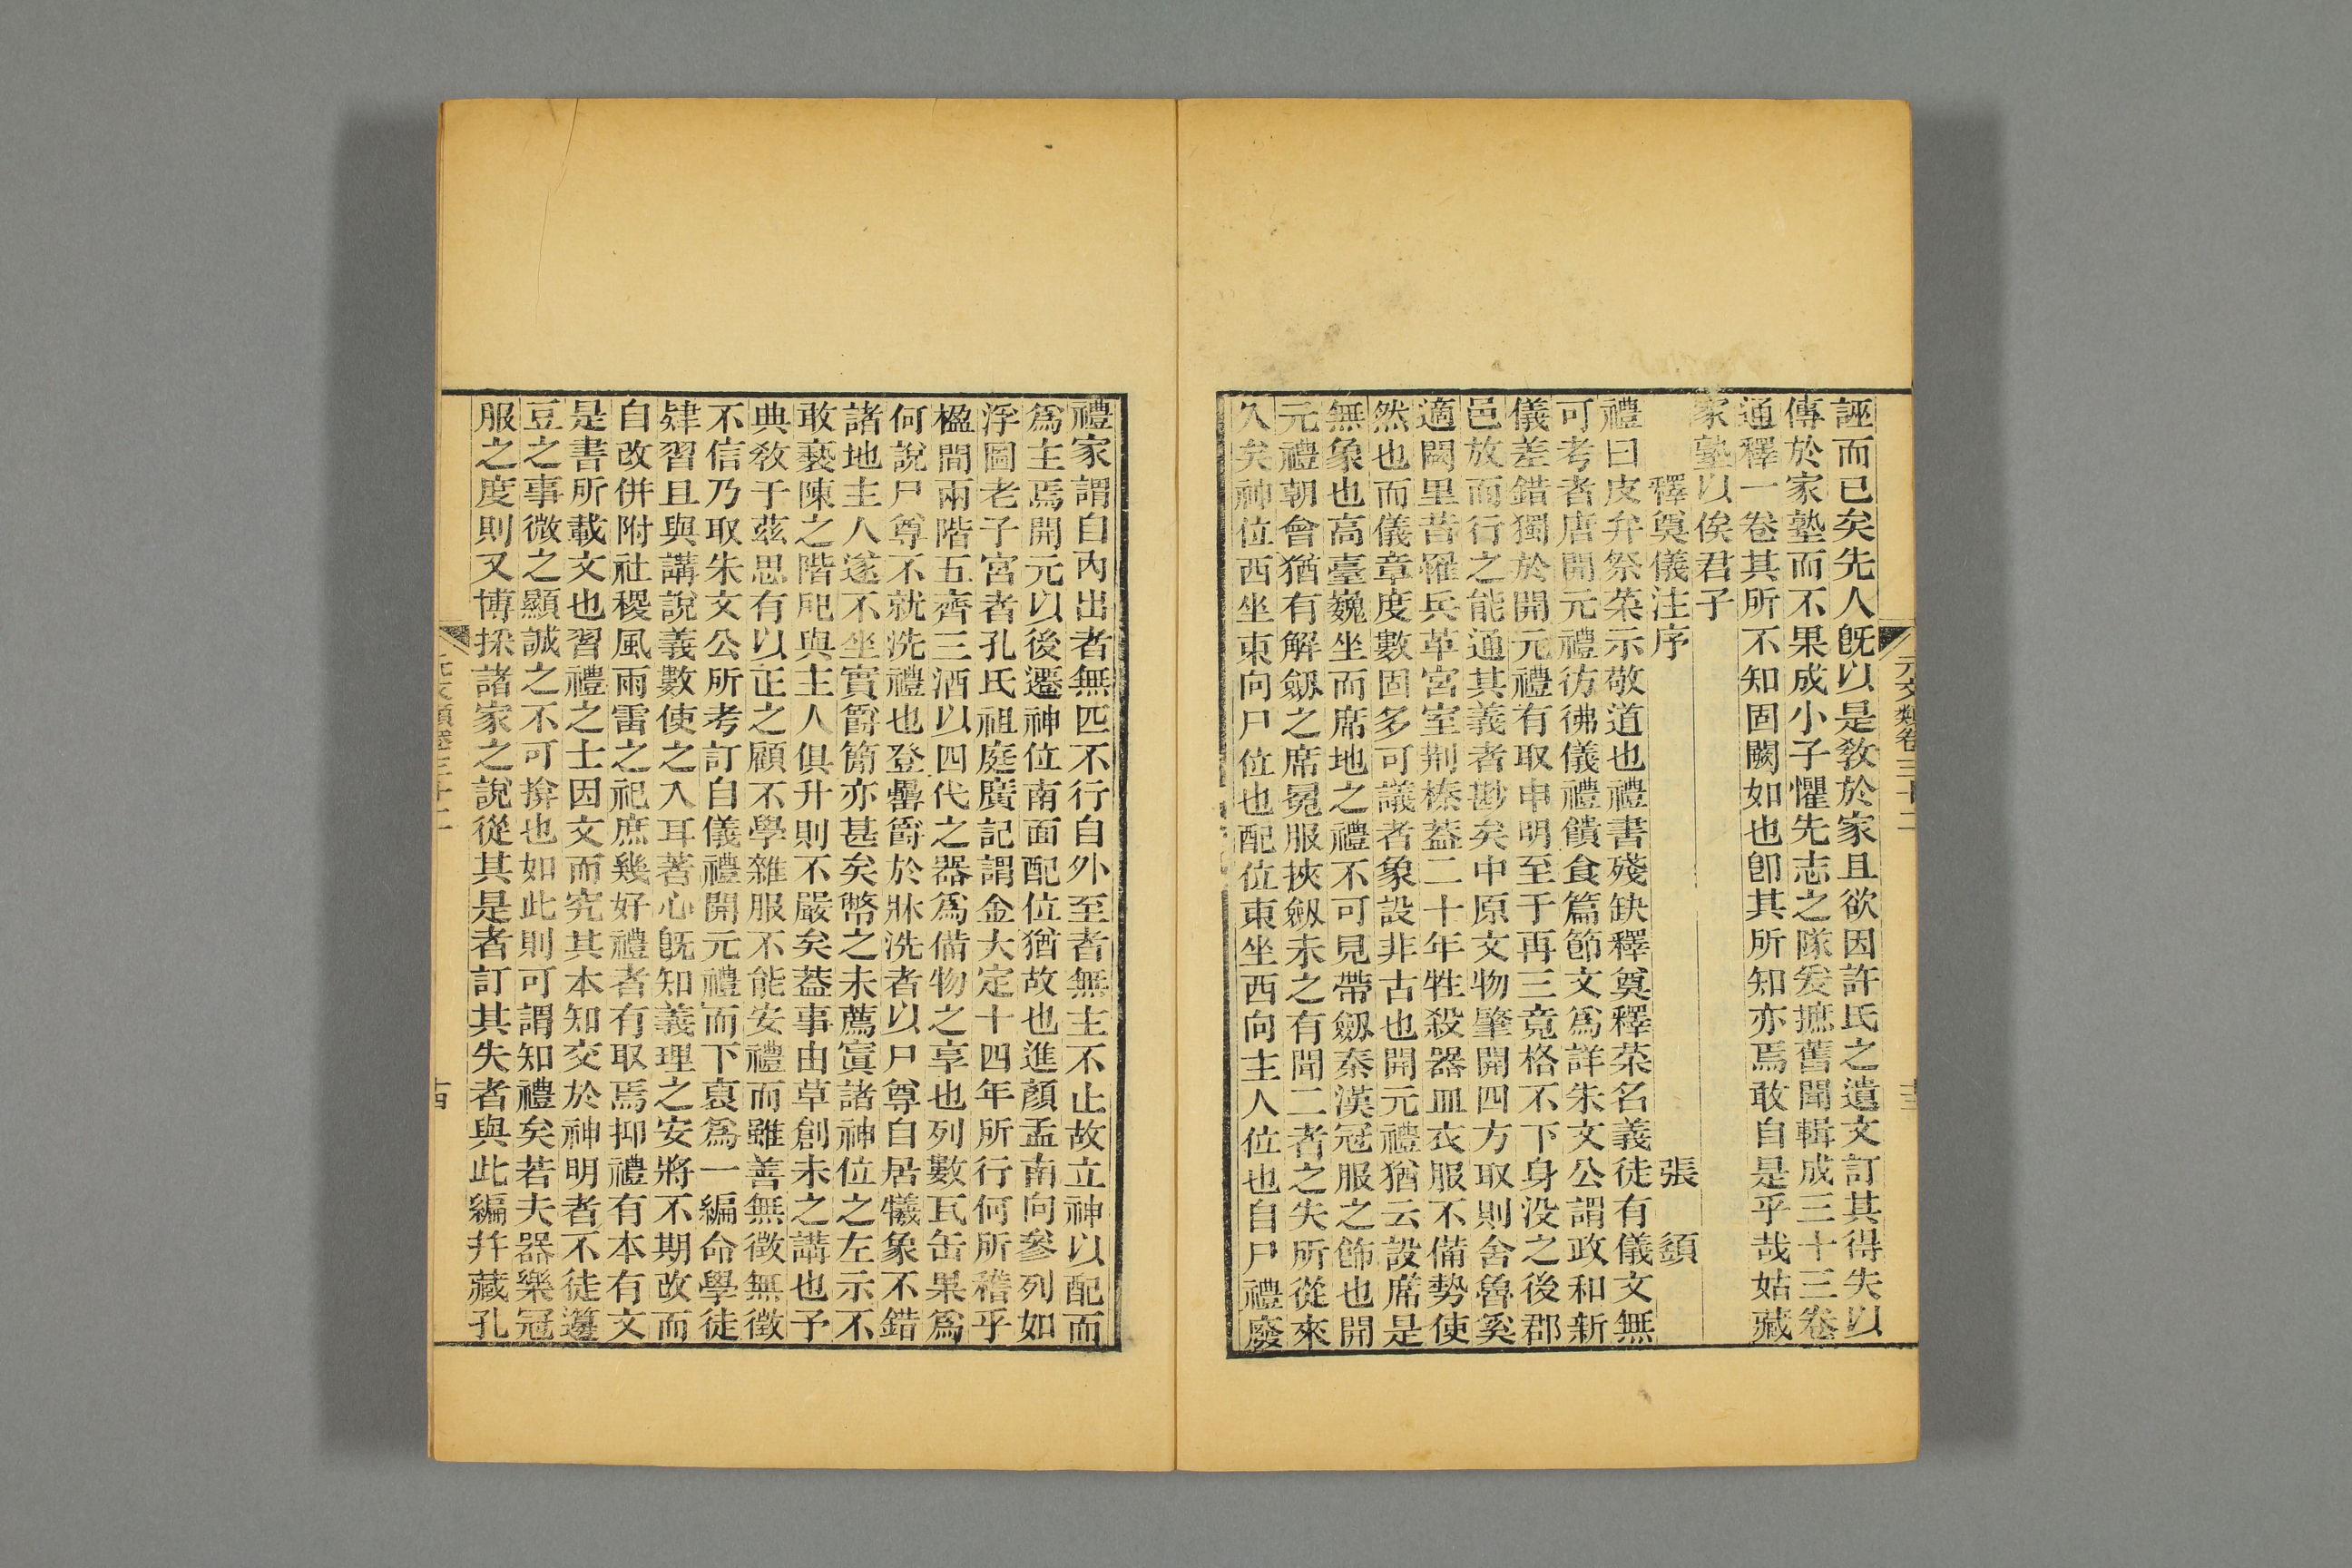 元文類卷三十二
十三
誣而已矣先人旣以是敎於家且欲因許氏之遺文訂其得失以
傳於家塾而不果成小子懼先志之隊爰摭舊聞輯成三十三卷
通釋一卷其所不知固闕如也卽其所知亦焉敢自是乎哉姑藏
家塾以俟君子
釋奠儀注序
張𩓣
禮曰皮弁祭菜示敬道也禮書殘缺釋奠釋菜名義徒有儀文無
可考者唐開元禮彷彿儀禮饋食篇節文爲詳朱文公謂政和新
儀差錯獨於開元禮有取申明至于再三竟格不下身没之後郡
邑放而行之能通其義者尠矣中原文物肇開四方取則舍魯奚
適闕里昔罹兵革宮室荆榛葢二十年牲殺器皿衣服不備勢使
然也而儀章度數固多可議者象設非古也開元禮猶云設席是
無象也高臺巍坐而席地之禮不可見帶劒秦漢冠服之飾也開
元禮朝會猶有解劒之席冕服挾劒未之有聞二者之失所從來
久矣神位西坐東向尸位也配位東坐西向主人位也自尸禮廢
禮家謂自內出者無匹不行自外至者無主不止故立神以配而
爲主焉開元以後遷神位南面配位猶故也進顏孟南向參列如
浮圖老子宮者孔氏祖庭廣記謂金大定十四年所行何所稽乎
楹間兩階五齊三酒以四代之器爲備物之享也列數瓦缶果爲
何說尸尊不就洗禮也登罍爵於牀洗者以尸尊自居犧象不錯
諸地主人遂不坐實爵簡亦甚矣幣之未薦寘諸神位之左示不
敢褻陳之階戺與主人俱升則不嚴矣葢事由草創未之講也予
典敎于茲思有以正之顧不學雜服不能安禮而雖善無徵無徵
不信乃取朱文公所考訂自儀禮開元禮而下裒爲一編命學徒
肄習且與講說義數使之入耳著心旣知義理之安將不期改而
自改併附社稷風雨雷之祀庶幾好禮者有取焉抑禮有本有文
是書所載文也習禮之士因文而究其本知交於神明者不徒籩
豆之事微之顯誠之不可揜也如此則可謂知禮矣若夫器樂冠
服之度則又博採諸家之說從其是者訂其失者與此編幷藏孔
元文類卷三十二
十四